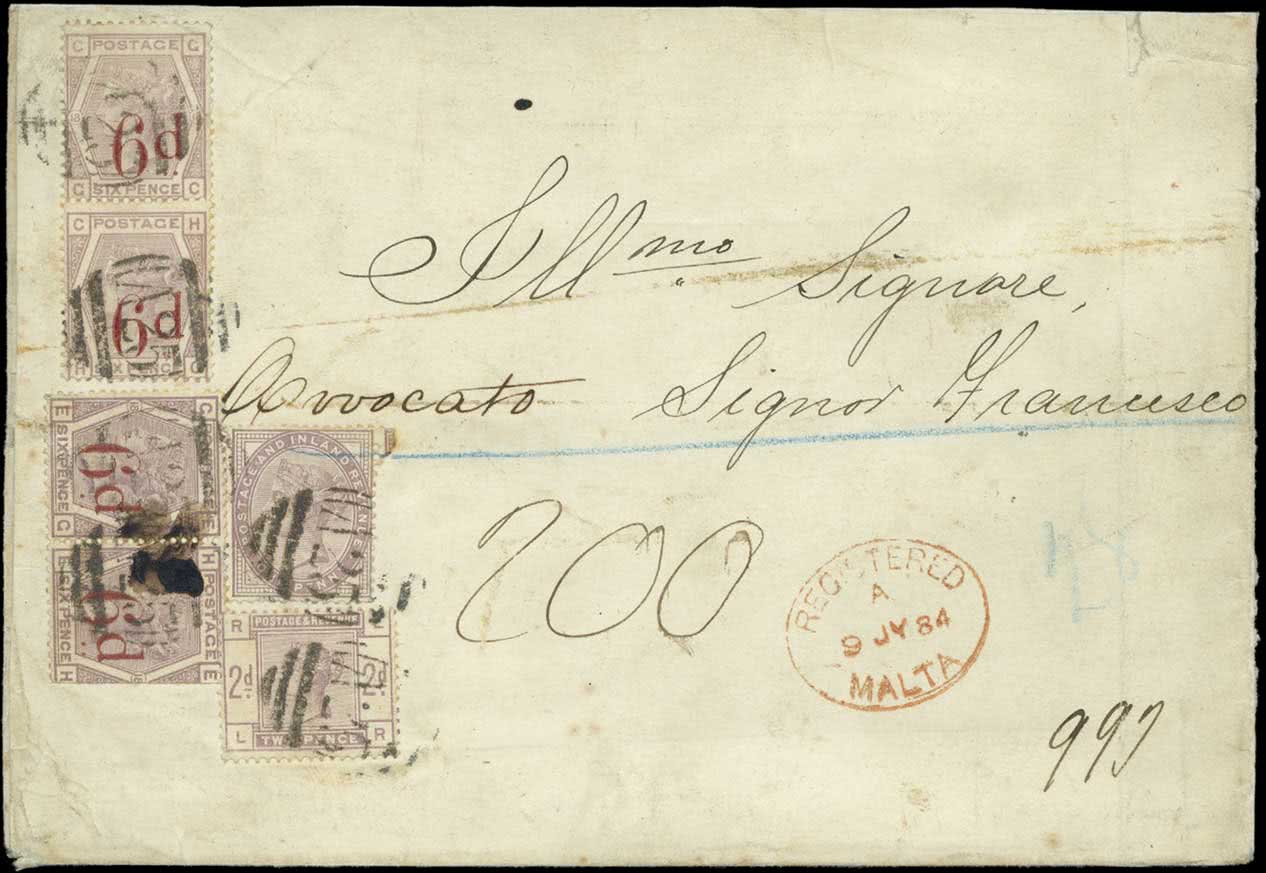 C POSTAGE G
6d
G SIX PENCE C
C POSTAGE H
6d
H SIX PENCE C
E SIX PENCE G
6d
H POSTAGE E
6d
E SIX PENCE H
POSTAGE AND INLAND REVENUE
R POSTAGE & REVENUE L
2d 2d
L TWO PENCE R
Illmo Signore,
Avvocato Signor Francesco
200
REGISTERED
A
9 JY 84
MALTA
997